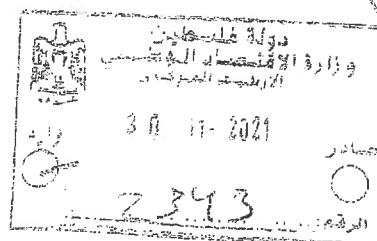 دولة فلسطين
وزارة الاقتصاد الوطني
الارشيف المركزي
30 -11- 2021
وارد
صادر
الرقم: 2343